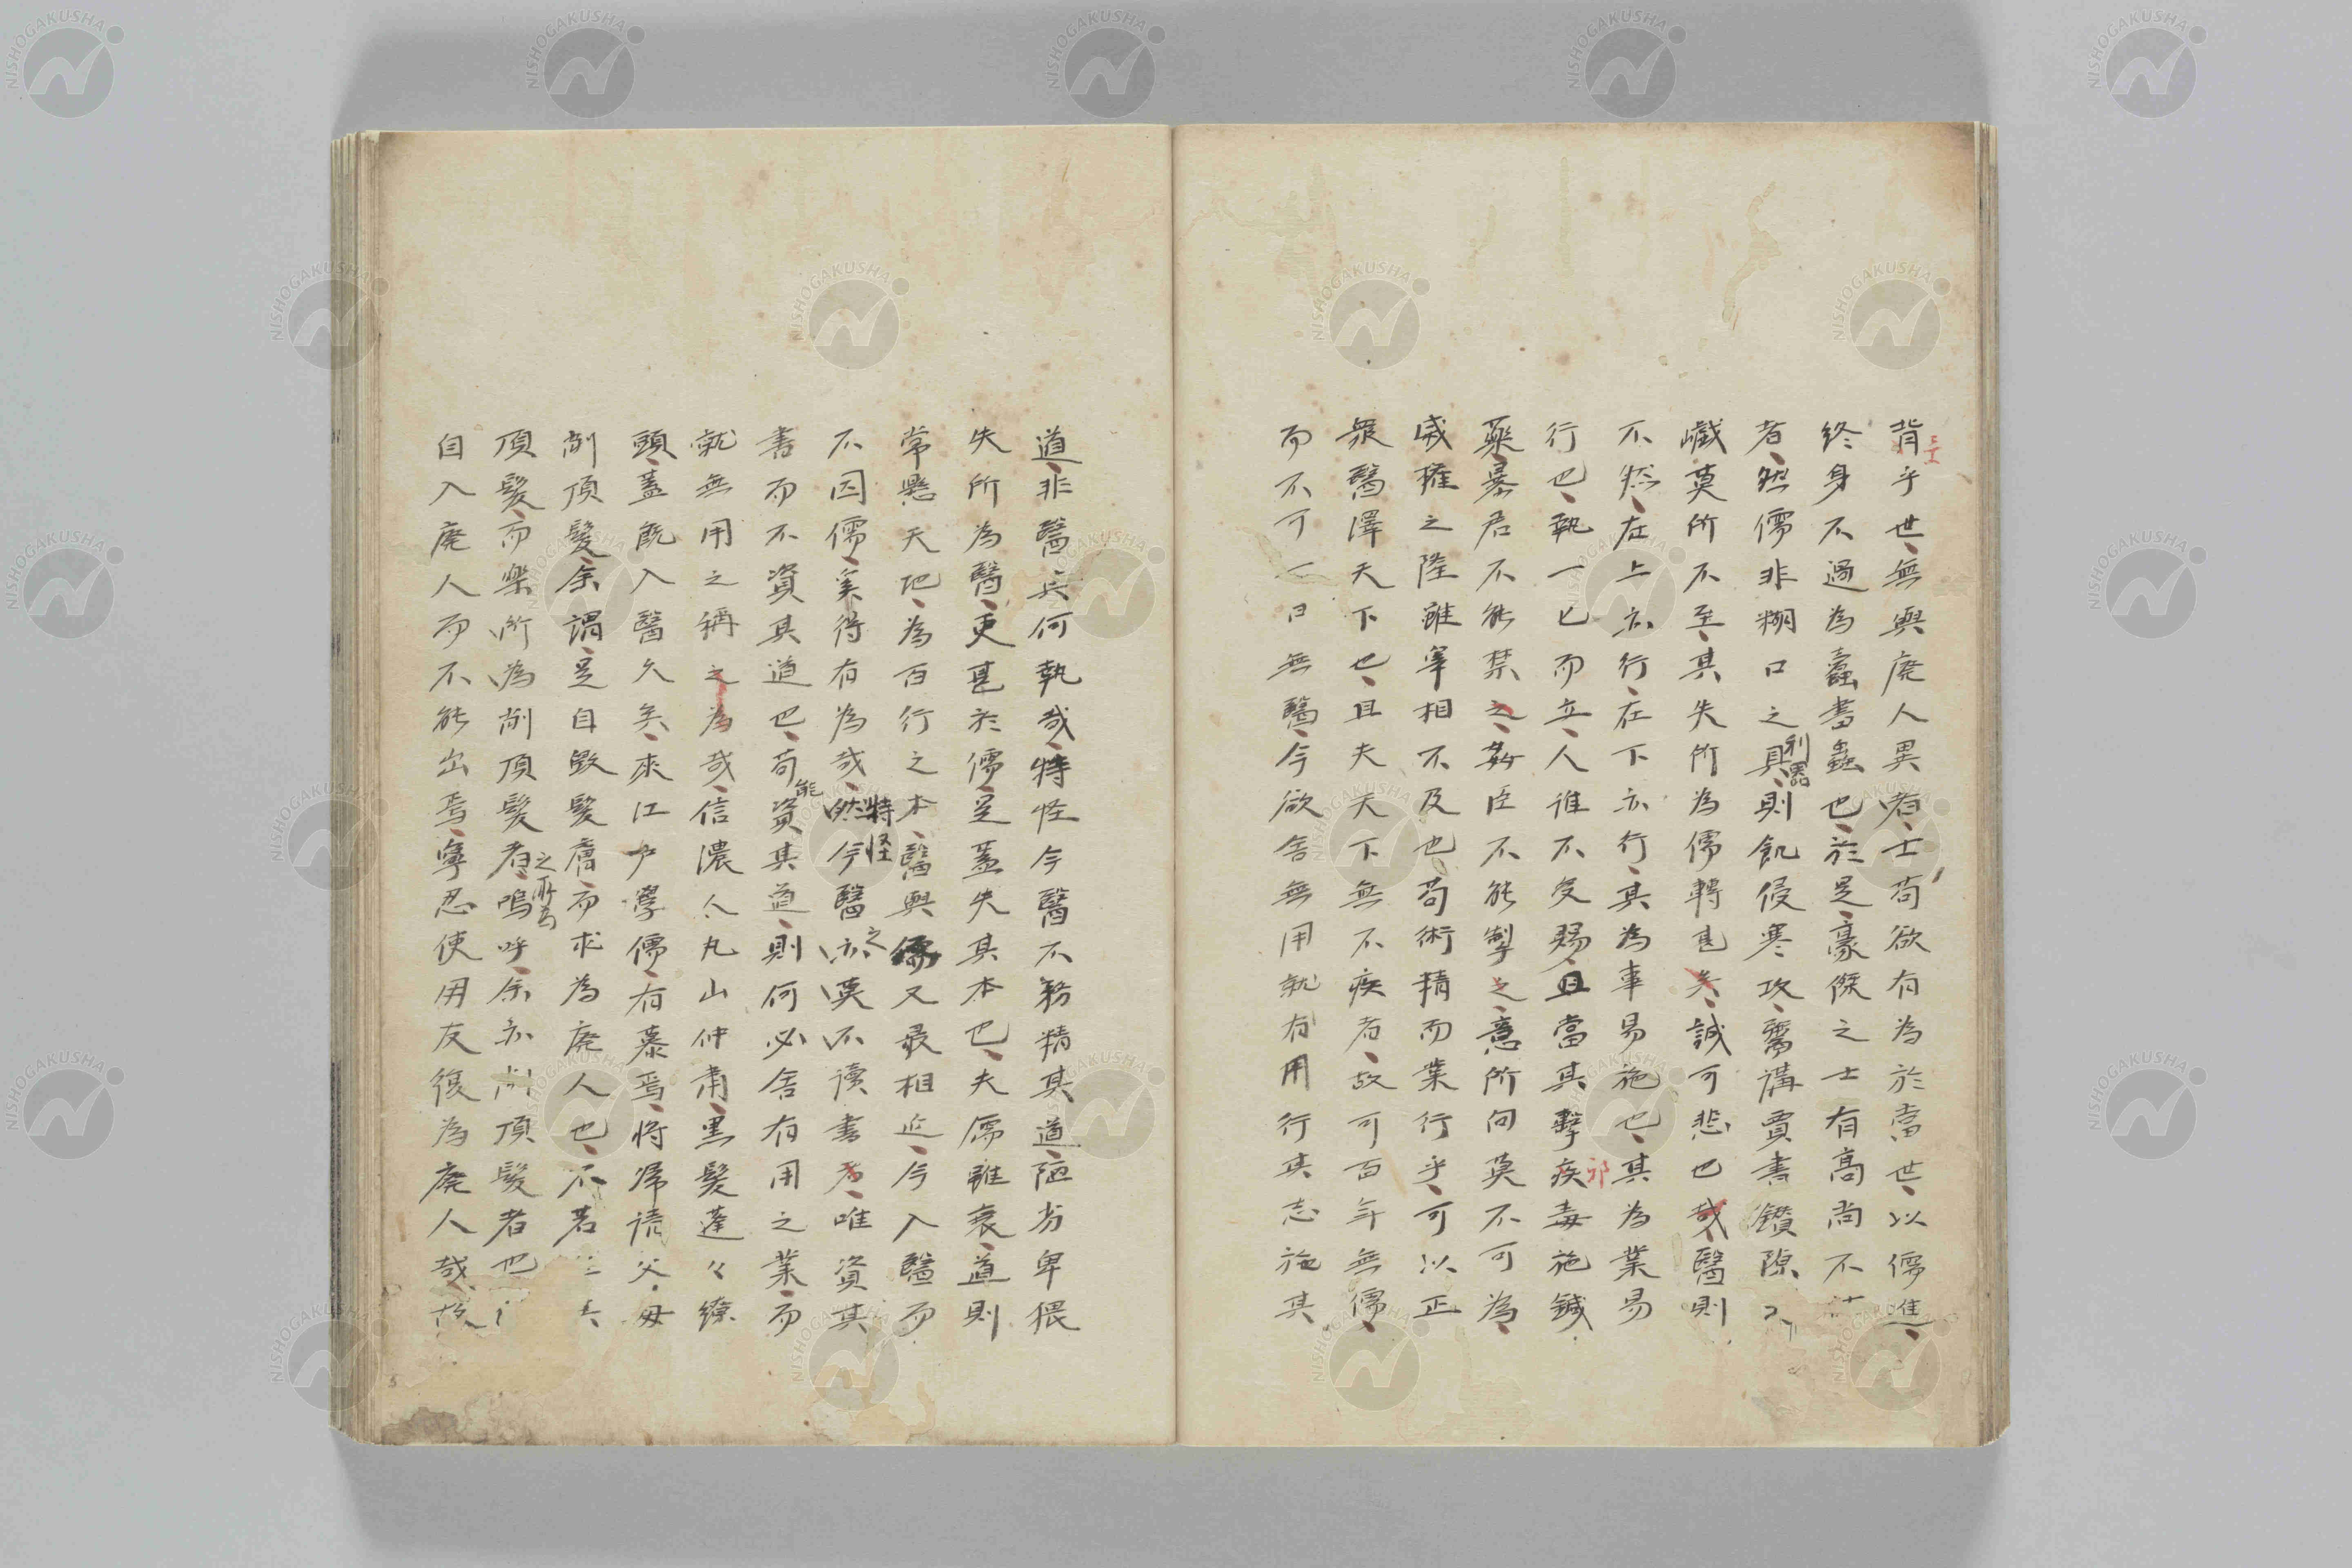 背乎世無興廃人異者士苟欲有為於當世以儒進
終身不過為蠧書蟲也於是豪傑之士有高尚不
者然儒非糊口之具利器則飢侵寒攻鬻講賣書鑽隙
巇莫所不至其失所為儒轉甚矣誠可悲也哉醫則
不然在上亦行在下亦行其為事易施也其為業易
行也執一匕而立人誰不受賜且當其擊疾邪毒施鍼
藥暴君不能禁之姦臣不能掣之意所向莫不可為
威權之隆雖宰相不及也苟術精而業行乎可以正
衆醫澤天下也且夫天下無不疾者故可百年無儒
而不可一日無醫今欲舍無用就有用行其志施其
道非醫兵何執哉特怪今醫不務精其道陋劣卑猥
失所為醫更甚於儒是蓋失其本也夫儒雖衰道則
常懸天地為百行之本醫與儒又最相近今入醫而
不因儒奚得有為哉然特怪今醫之亦莫不讀書者唯資其
書而不資其道也苟能資其道則何必舍有用之業而
就無用之稱之為哉信濃人丸山仲肅黒髮蓬々繚
頭蓋既入醫久矣來江戸學儒有慕焉將帰請父母
削頂髮余謂是自毀髮膚而求為廃人也不若
頂髮而樂所為削頂髮者之所為嗚呼余亦削頂髮者也
自入廃人而不能出焉寧忍使用友復為廃人哉故
NISHOGAKUSHA